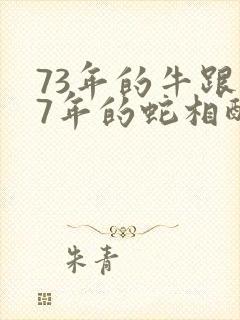 73年的牛跟
7年的蛇相配
朱青